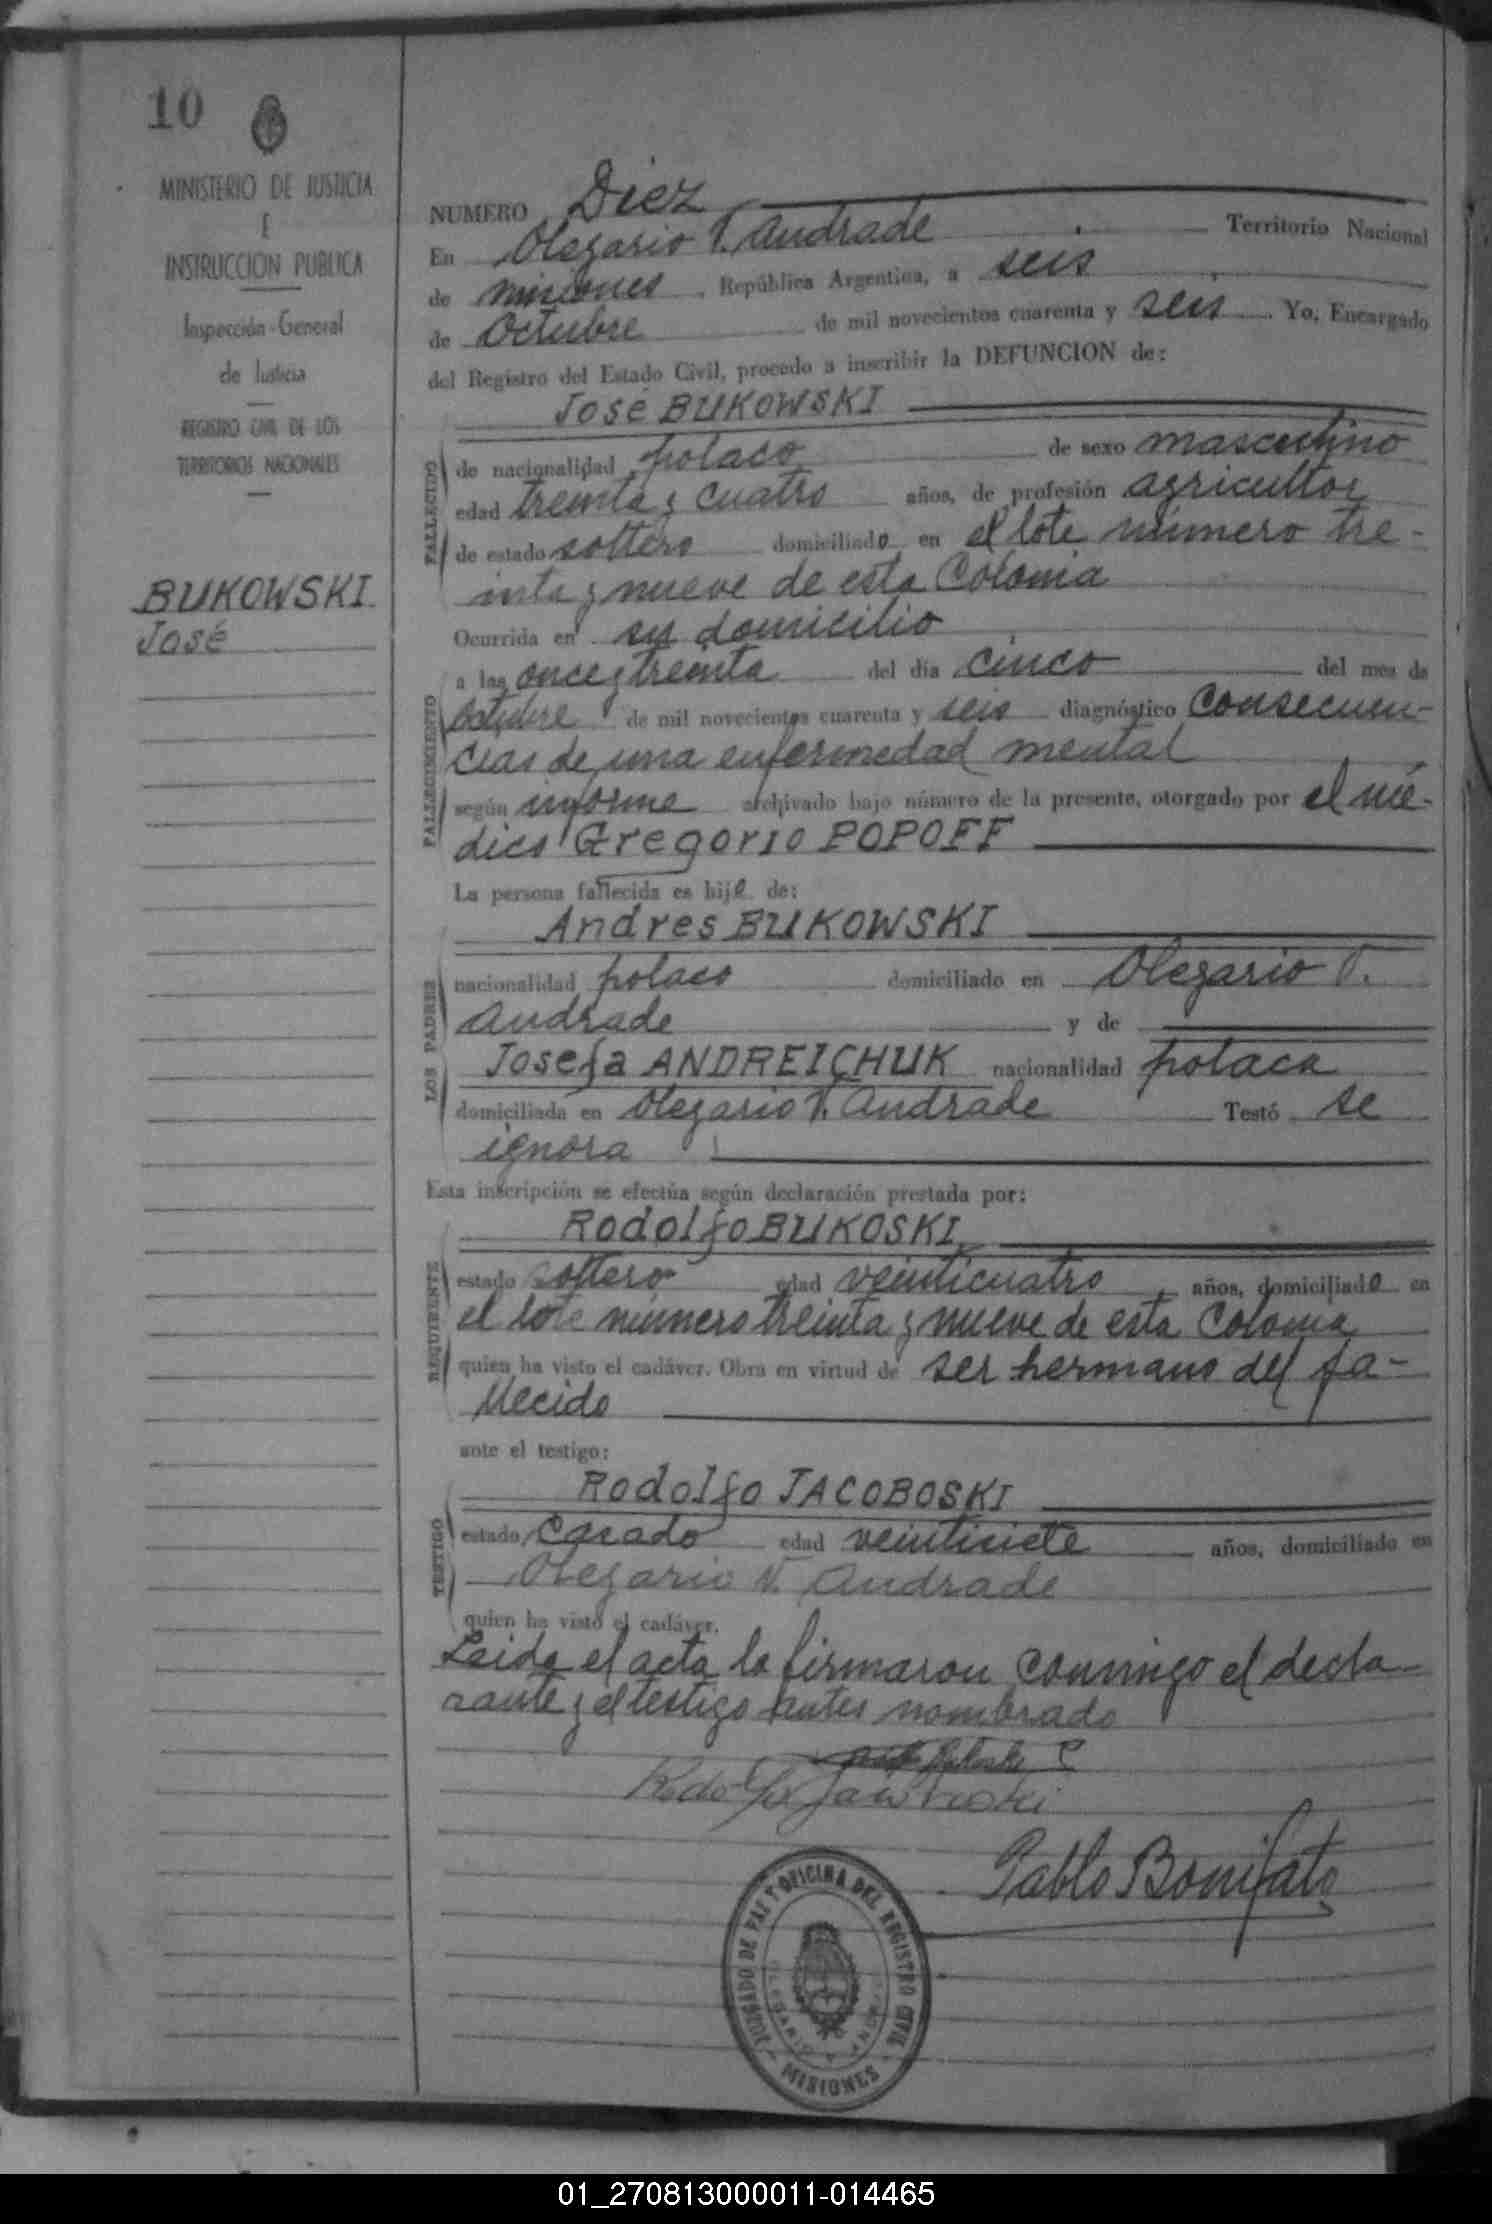 10
MINISTERIO DE JUSTICIA
E
INSTRUCCION PUBLICA
Inspección General
de Justicia
REGISTRO CIVIL DE LOS
TERRITORIOS NACIONALES
BUKOWSKI
José
NUMERO Diez
En Olegario V. Andrade Territorio Nacional
de misiones, República Argentina, a seis
de Octubre de mil novecientos cuarenta y seis. Yo, Encargado
del Registro del Estado Civil, procedo a inscribir la DEFUNCION de:
José BUKOWSKI
FALLECIDO
de nacionalidad polaco de sexo masculino
edad treinta y cuatro años, de profesión agricultor
de estado soltero domiciliado en el lote número tre-
inta y nueve de esta Colonia
FALLECIMIENTO
Ocurrida en su domicilio
a las once y treinta del día cinco del mes de
octubre de mil novecientos cuarenta y seis diagnóstico Consecuen-
cias de una enfermedad mental
según informe archivado bajo número de la presente, otorgado por el mé-
dico Gregorio POPOFF
La persona fallecida es hijo de:
LOS PADRES
Andres BUKOWSKI
nacionalidad polaco domiciliado en Olegario V.
Andrade y de
Josefa ANDREICHUK nacionalidad polaca
domiciliada en Olegario V. Andrade Testó se
ignora
Esta inscripción se efectúa según declaración prestada por:
REQUIRENTE
Rodolfo BUKOSKI
estado soltero edad veinticuatro años, domiciliado en
el lote número treinta y nueve de esta Colonia
quien ha visto el cadáver. Obra en virtud de ser hermano del fa-
llecido
ante el testigo:
TESTIGO
Rodolfo JACOBOSKI
estado Casado edad veintisiete años, domiciliado en
Olegario V. Andrade
quien ha visto el cadáver.
Leida el acta la firmaron conmigo el decla-
rante y el testigo antes nombrado
Rodolfo
Pablo Bonifato
JUZGADO DE PAZ Y OFICINA DEL REGISTRO CIVIL
OLEGARIO V. ANDRADE
MISIONES
01_270813000011-014465